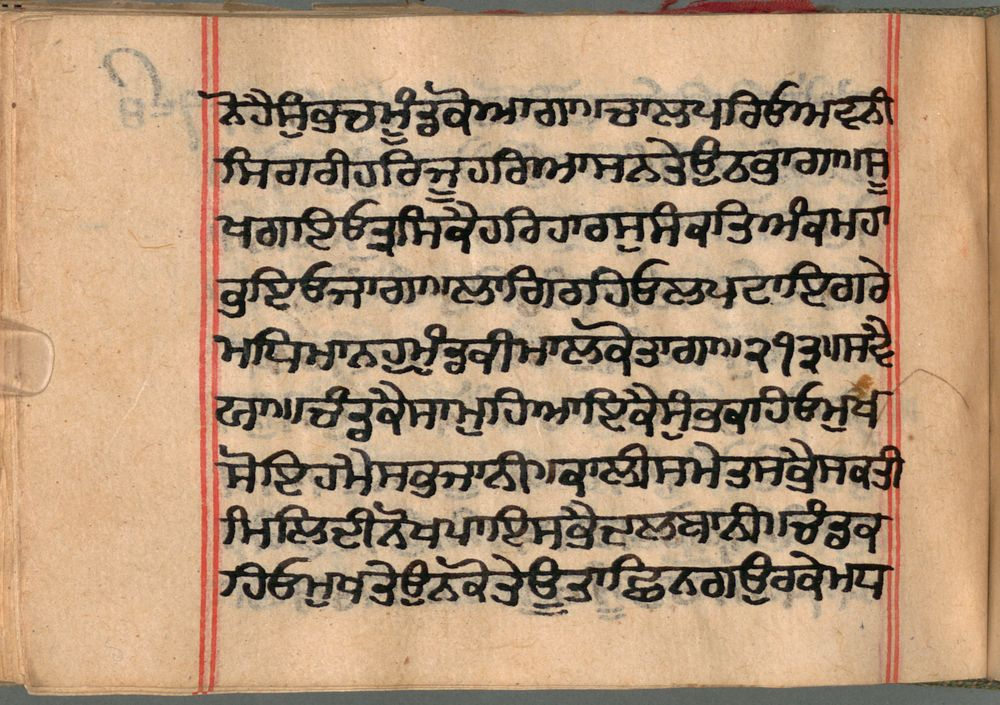 ਨੋਹੈਸੁੰਕੁਚਮੂੰਡਕੋਆਗ॥ਚਾਲਪਰਿਓਅਵਨੀ
ਸਿਗਰੀਹਰਿਜੂਹਰਿਆਸਨਤੇਉਠਭਾਗ॥ਸੂ
ਖਗਇਓਤ੍ਰਸਿਕੈਹਰਿਹਾਰਸੁਸੰਕਤਿਅੰਕਮਹਾ
ਭਇਓਜਾਗ॥ਲਾਗਿਰਹਿਓਲਪਟਾਇਗਰੇ
ਮਧਿਮਾਨਹੁਮੁੰਡਕੀਮਾਲਕੋਤਾਗ॥੨੧੩॥ਸਵੈ
ਯਾ॥ਚੰਡਕੈਸਾਮੁਹਿਆਇਕੈਸੁੰਭਕਹਿਓਮੁਖ
ਸੋਇਹਮੈਸਭਜਾਨੀ॥ਕਾਲੀਸਮੇਤਸਭੈਸਕਤੀ
ਮਿਲਿਦੀਨੋਖਪਾਇਸਭੈਦਲਬਾਨੀ॥ਚੰਡਕ
ਹਿਓਮੁਖਤੇਉਨਕੋਤੇਊਤਾਛਿਨਗਉਰਕੇਮਧ